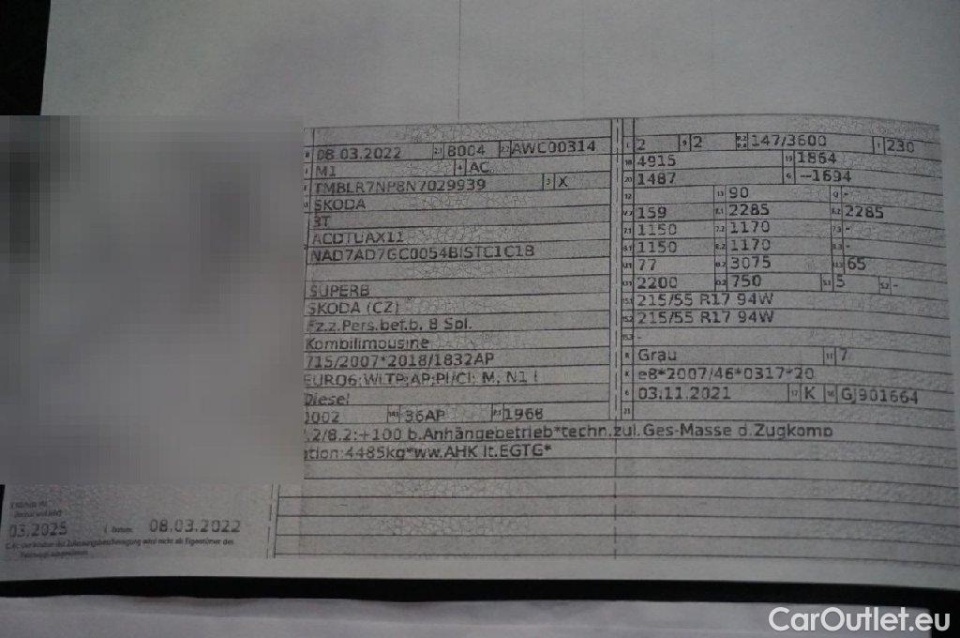 08.03.2022 8004 AWC00314
M1 AC
TMBLR7NP8N7029939 X
SKODA
3T
ACDTUAX11
NAD7AD7GC0054BISTC1C1B
SUPERB
SKODA (CZ)
Fz.z.Pers.bef.b. 8 Spl.
Kombilimousine
715/2007*2018/1832AP
EURO6;WLTP;AP;PI/CI: M, N1 I
Diesel
0002 36AP 1968
.2/8.2:+100 b.Anhängebetrieb*techn.zul.Ges-Masse d.Zugkomb
ation:4485kg*ww.AHK lt.EGTG*
2 2 147/3600 230
4915 1864
1487 --1694
90 -
159 2285 2285
1150 1170 -
1150 1170 -
77 3075 65
2200 750 5 -
215/55 R17 94W
215/55 R17 94W
-
Grau 7
e8*2007/46*0317*20
03.11.2021 K GJ901664
03.2025 08.03.2022
CarOutlet.eu